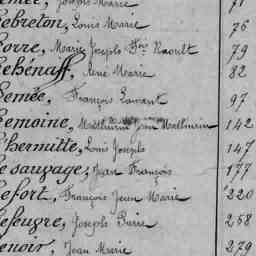 Joseph Marie 71
Lebreton, Louis Marie 76
Lorre, Marie Joseph Fme Raoult 79
Lehénaff, René Marie 82
Lemée, François Laurent 97
Lemoine, Mathurin Jean Mathurin 142
Lhermitte, Louis Joseph 147
Lesauzage, Jean François 177
Lefort, François Jean Marie 220
Lefeugre, Joseph Pierre 258
Lenoir, Jean Marie 279